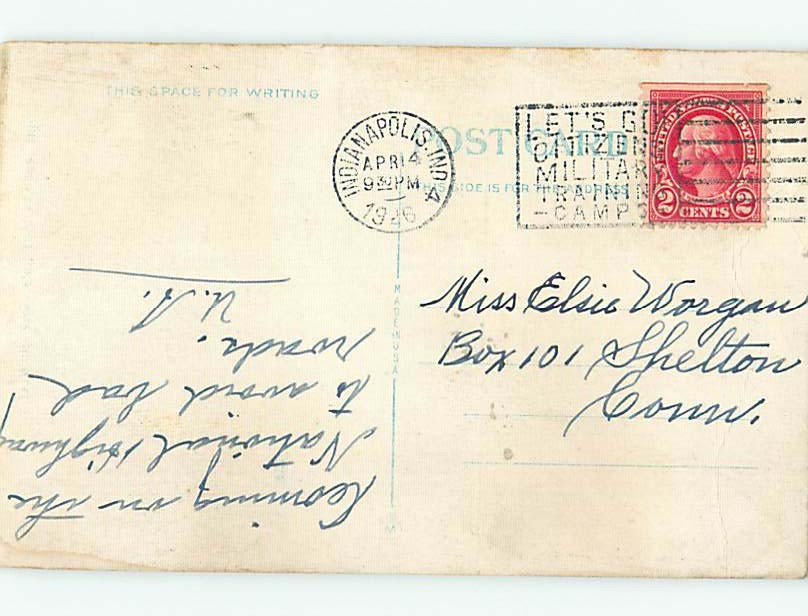 THIS SPACE FOR WRITING
POST CARD
THIS SIDE IS FOR THE ADDRESS
INDIANAPOLIS, IND. 4
APR 14
9 30 PM
1926
LET'S GO
CITIZENS
MILITARY
TRAINING
CAMPS
UNITED STATES POSTAGE
2 CENTS 2
MADE IN USA
Miss Elsie Worgan
Box 101 Shelton
Conn.
Coming on the
National Highway
to avoid bad
roads.
U.A.
M